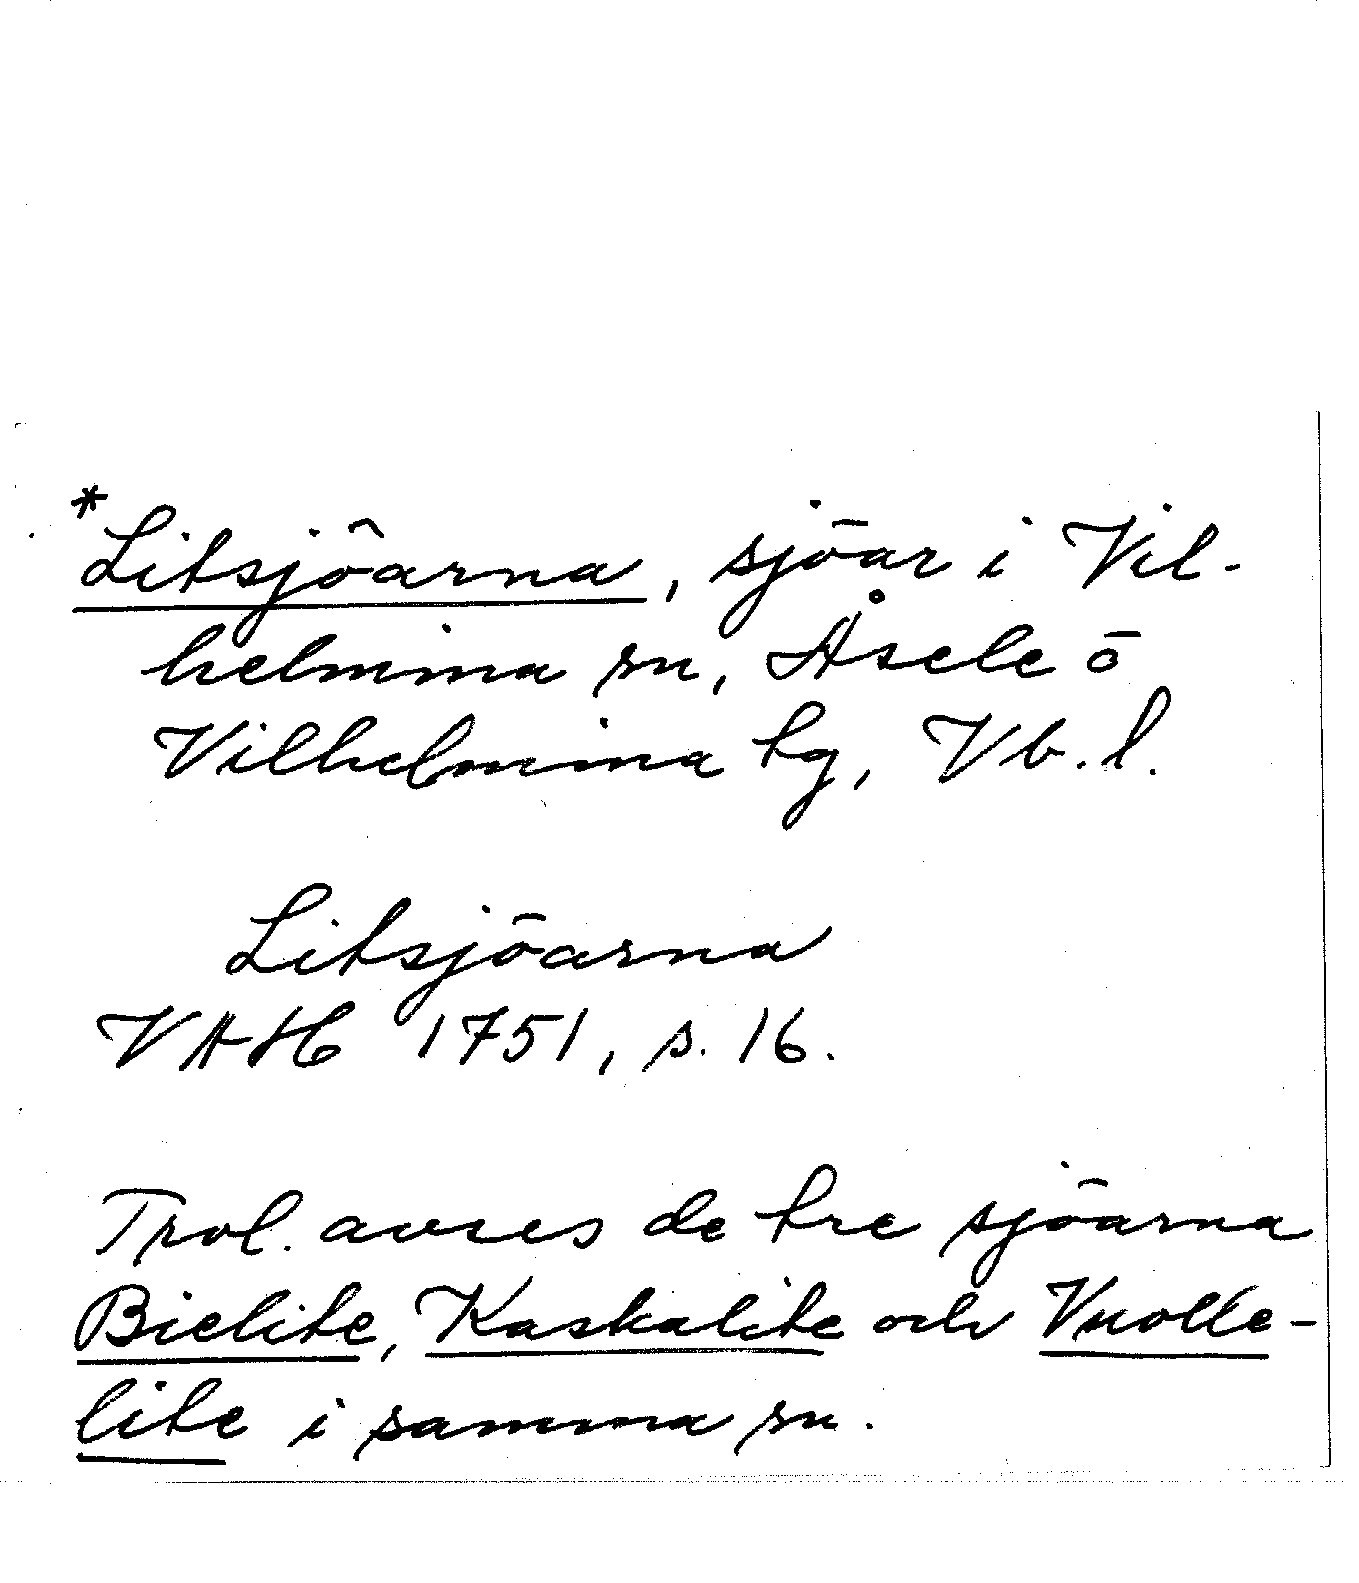 *Litsjöarna, sjöar i Vil-
helmina sn, Åsele o
Vilhelmina tg, Vb. l.
Litsjöarna
VAH 1751, s. 16.
Trol. avses de tre sjöarna
Bielite, Kaskalite och Vuolle-
lite i samma sn.